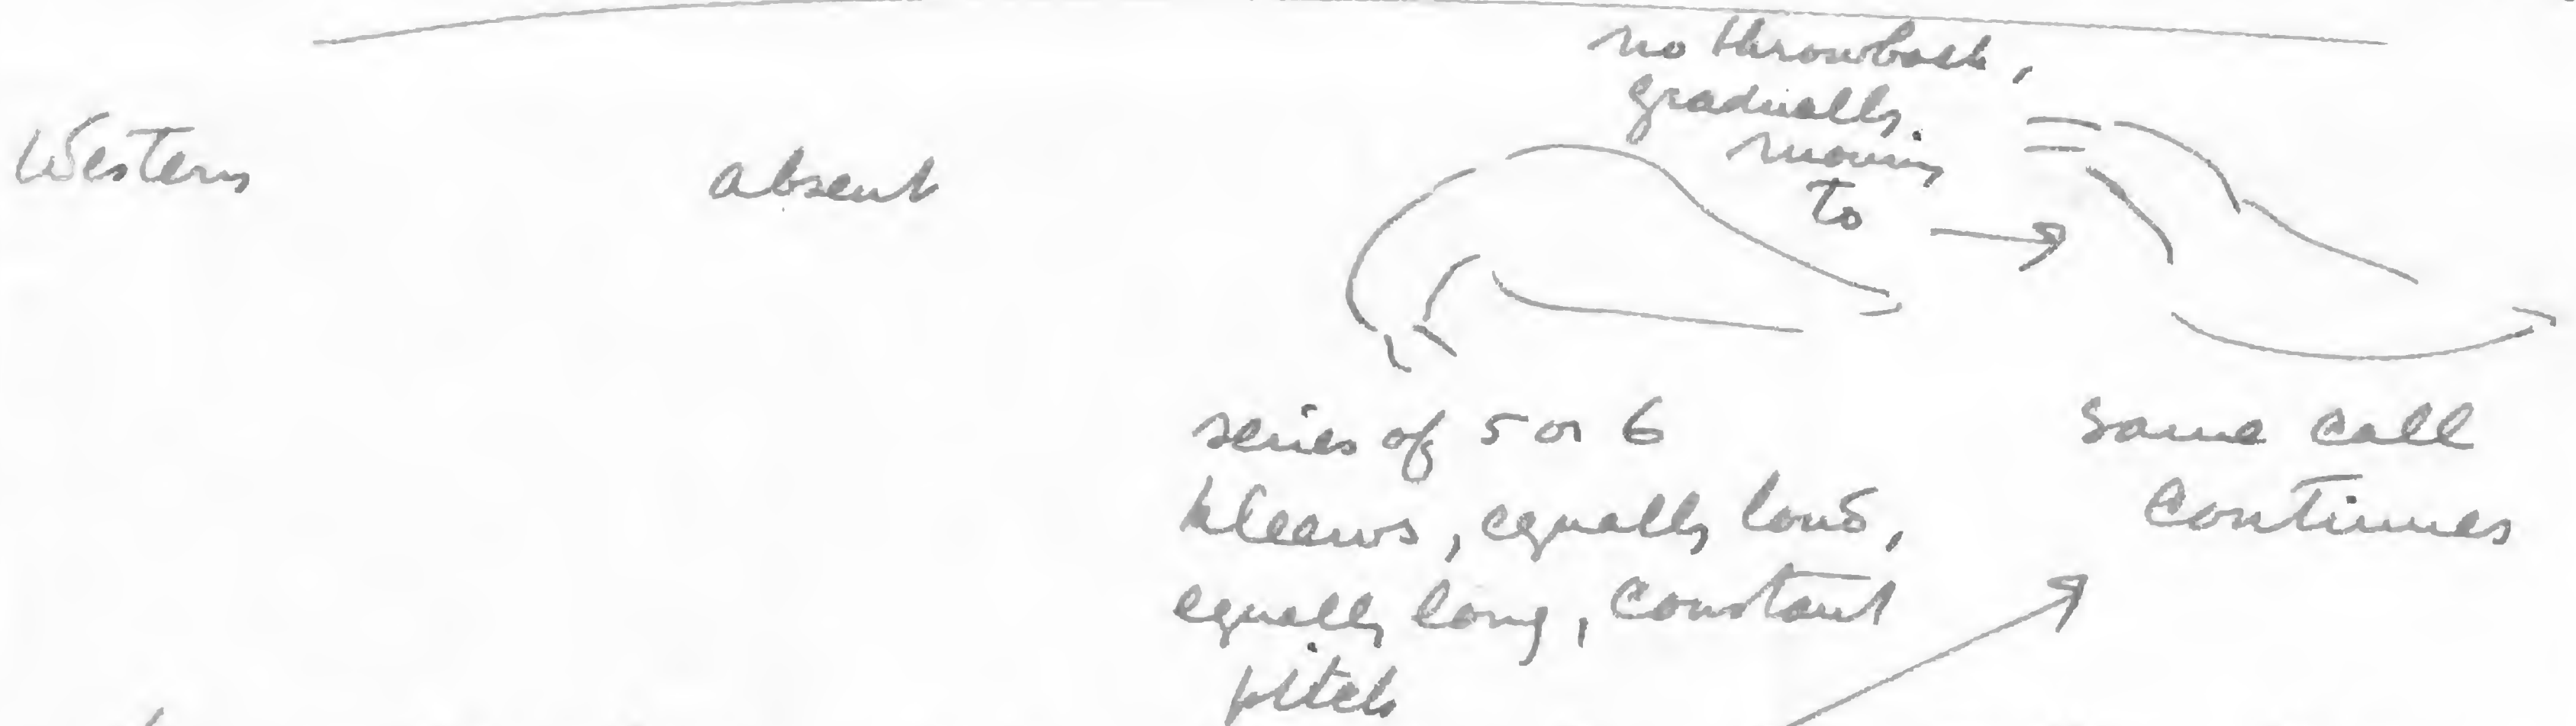 Western
absent
no throwback,
gradually
moving
to
series of 5 or 6
kleews, equally loud,
equally long, constant
pitch
same call
continues